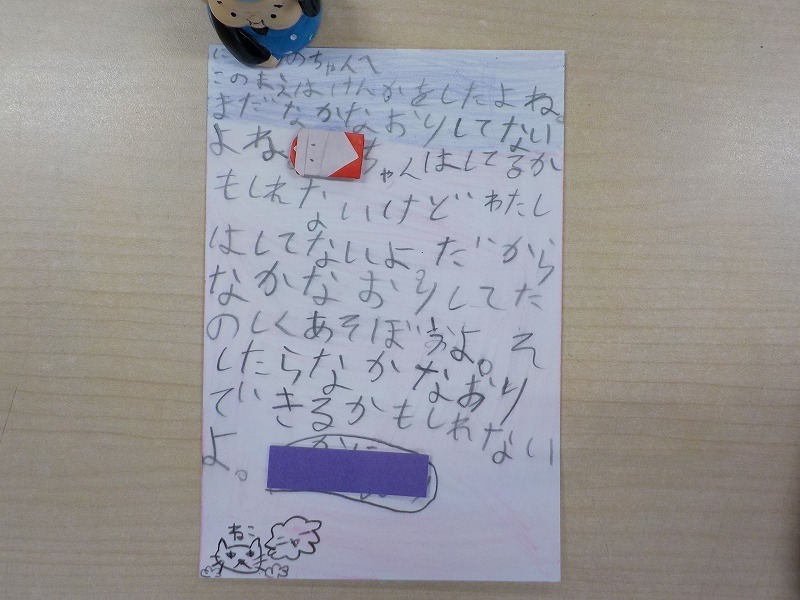 のちゃんへ
このまえはけんかをしたよね。
まだなかなおりしてない
よね ちゃんはしてるか
もしれないけど わたし
はしてないよ だから
なかなおりしてた
のしくあそぼおよ。そ
したらなかなおり
できるかもしれない
よ。
ねこ
ニャー